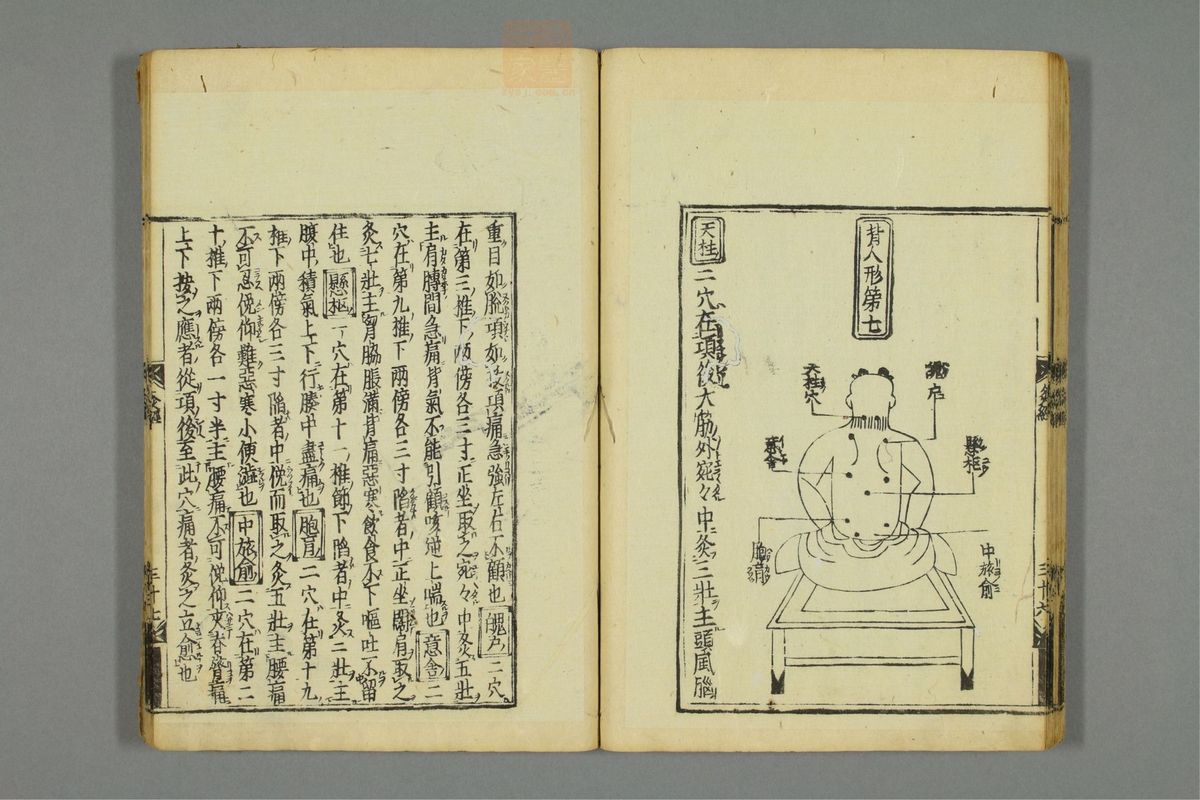 背人形第七
魄户
天柱穴
懸枢
意舍
中旅俞
胞肓
天柱 二穴在項後大筋外宛々中灸三壮主頭風腦
重目如脫項如拔項痛急強左右不顧也 魄户 二穴
在第三椎下両傍各三寸正坐取之宛々中灸五壮
主肩膊間急痛背氣不能引顧咳逆上喘也 意舎 二
穴在第九椎下両傍各三寸陷者中正坐闊肩取之
灸七壮主胃脇脹滿背痛惡寒飲食不下嘔吐不留
住也 懸枢 一穴在第十一椎節下陷者中灸二壮主
腹中積氣上下行腠中盡痛也 胞肓 二穴在第十九
椎下両傍各三寸陷者中俛而取之灸五壮主腰痛
不可忍俛仰難惡寒小便澁也 中旅俞 二穴在第二
十椎下両傍各一寸半主腰痛不可俛仰夹脊膂痛
上下按之應者從項後至此穴痛者灸之立愈也
灸經
三十六
灸經
三十七